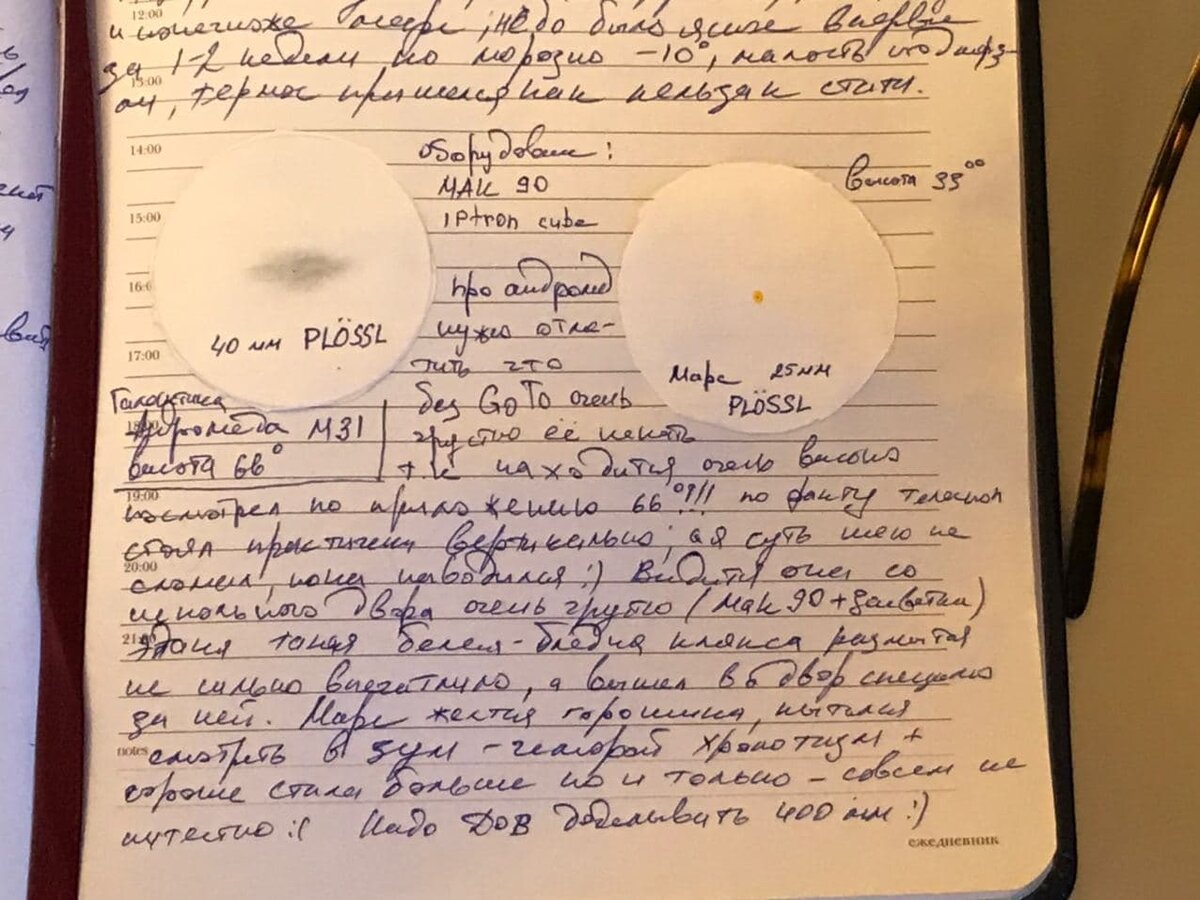 12:00
небо было ясное впервые
за 1-2 недели но морозно -10°, малость
13:00
термос пришелся как нельзя к стати.
14:00
Оборудование:
МАК 90
iOptron cube
15:00
16:0
17:00
40 мм PLÖSSL
Галактика
Андромеда М31
высота 66°
про андромед
нужно отме-
тить что
без GoTo очень
грустно её искать
т.к находится очень высоко
высота 33°°
Марс 25мм
PLÖSSL
19:00
посмотрел по приложению 66°?!!! по факту телескоп
стоял практически вертикально, а я чуть шею не
20:00
сломал, пока наводился :) Видится она со
школьного двора очень грустно (Мак 90 + засветка)
21:00
этакая такая белая-бледная клякса размытая
не сильно впечатлило, а вышел во двор специально
за ней. Марс желтая горошина, пытался
notes
смотреть в зум - хроматизм +
больше но и только - совсем не
:( Надо ДОВ доделывать 400 мм :)
ежедневник